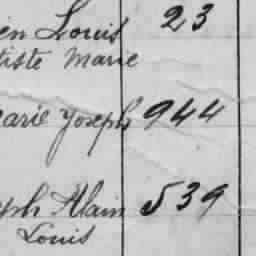 en Louis 23
tiste Marie
arie Joseph 944
eph Alain 539
Louis